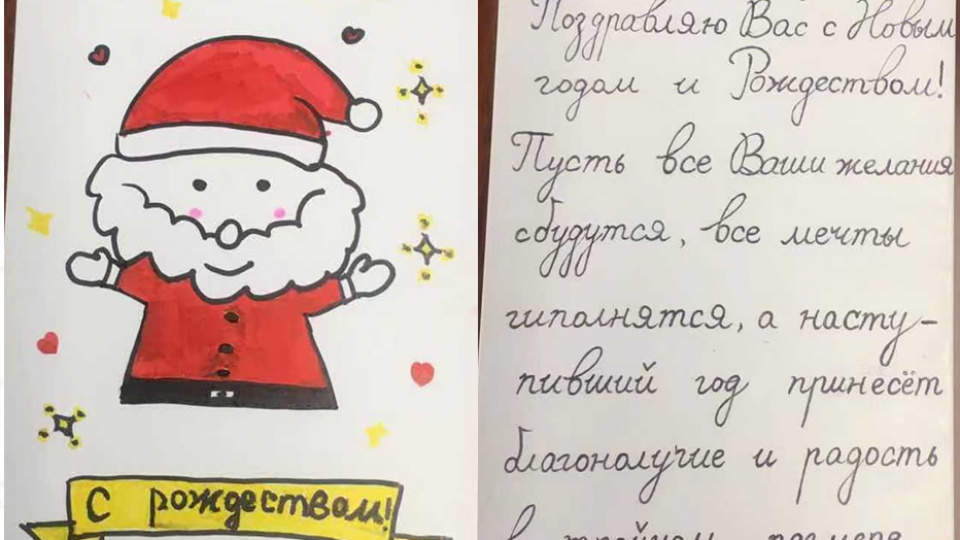 С рождеством!
Поздравляю Вас с Новым
годом и Рождеством!
Пусть все Ваши желания
сбудутся, все мечты
гиполнятся, а насту-
пивший год принесёт
благополучие и радость
в тройном размере